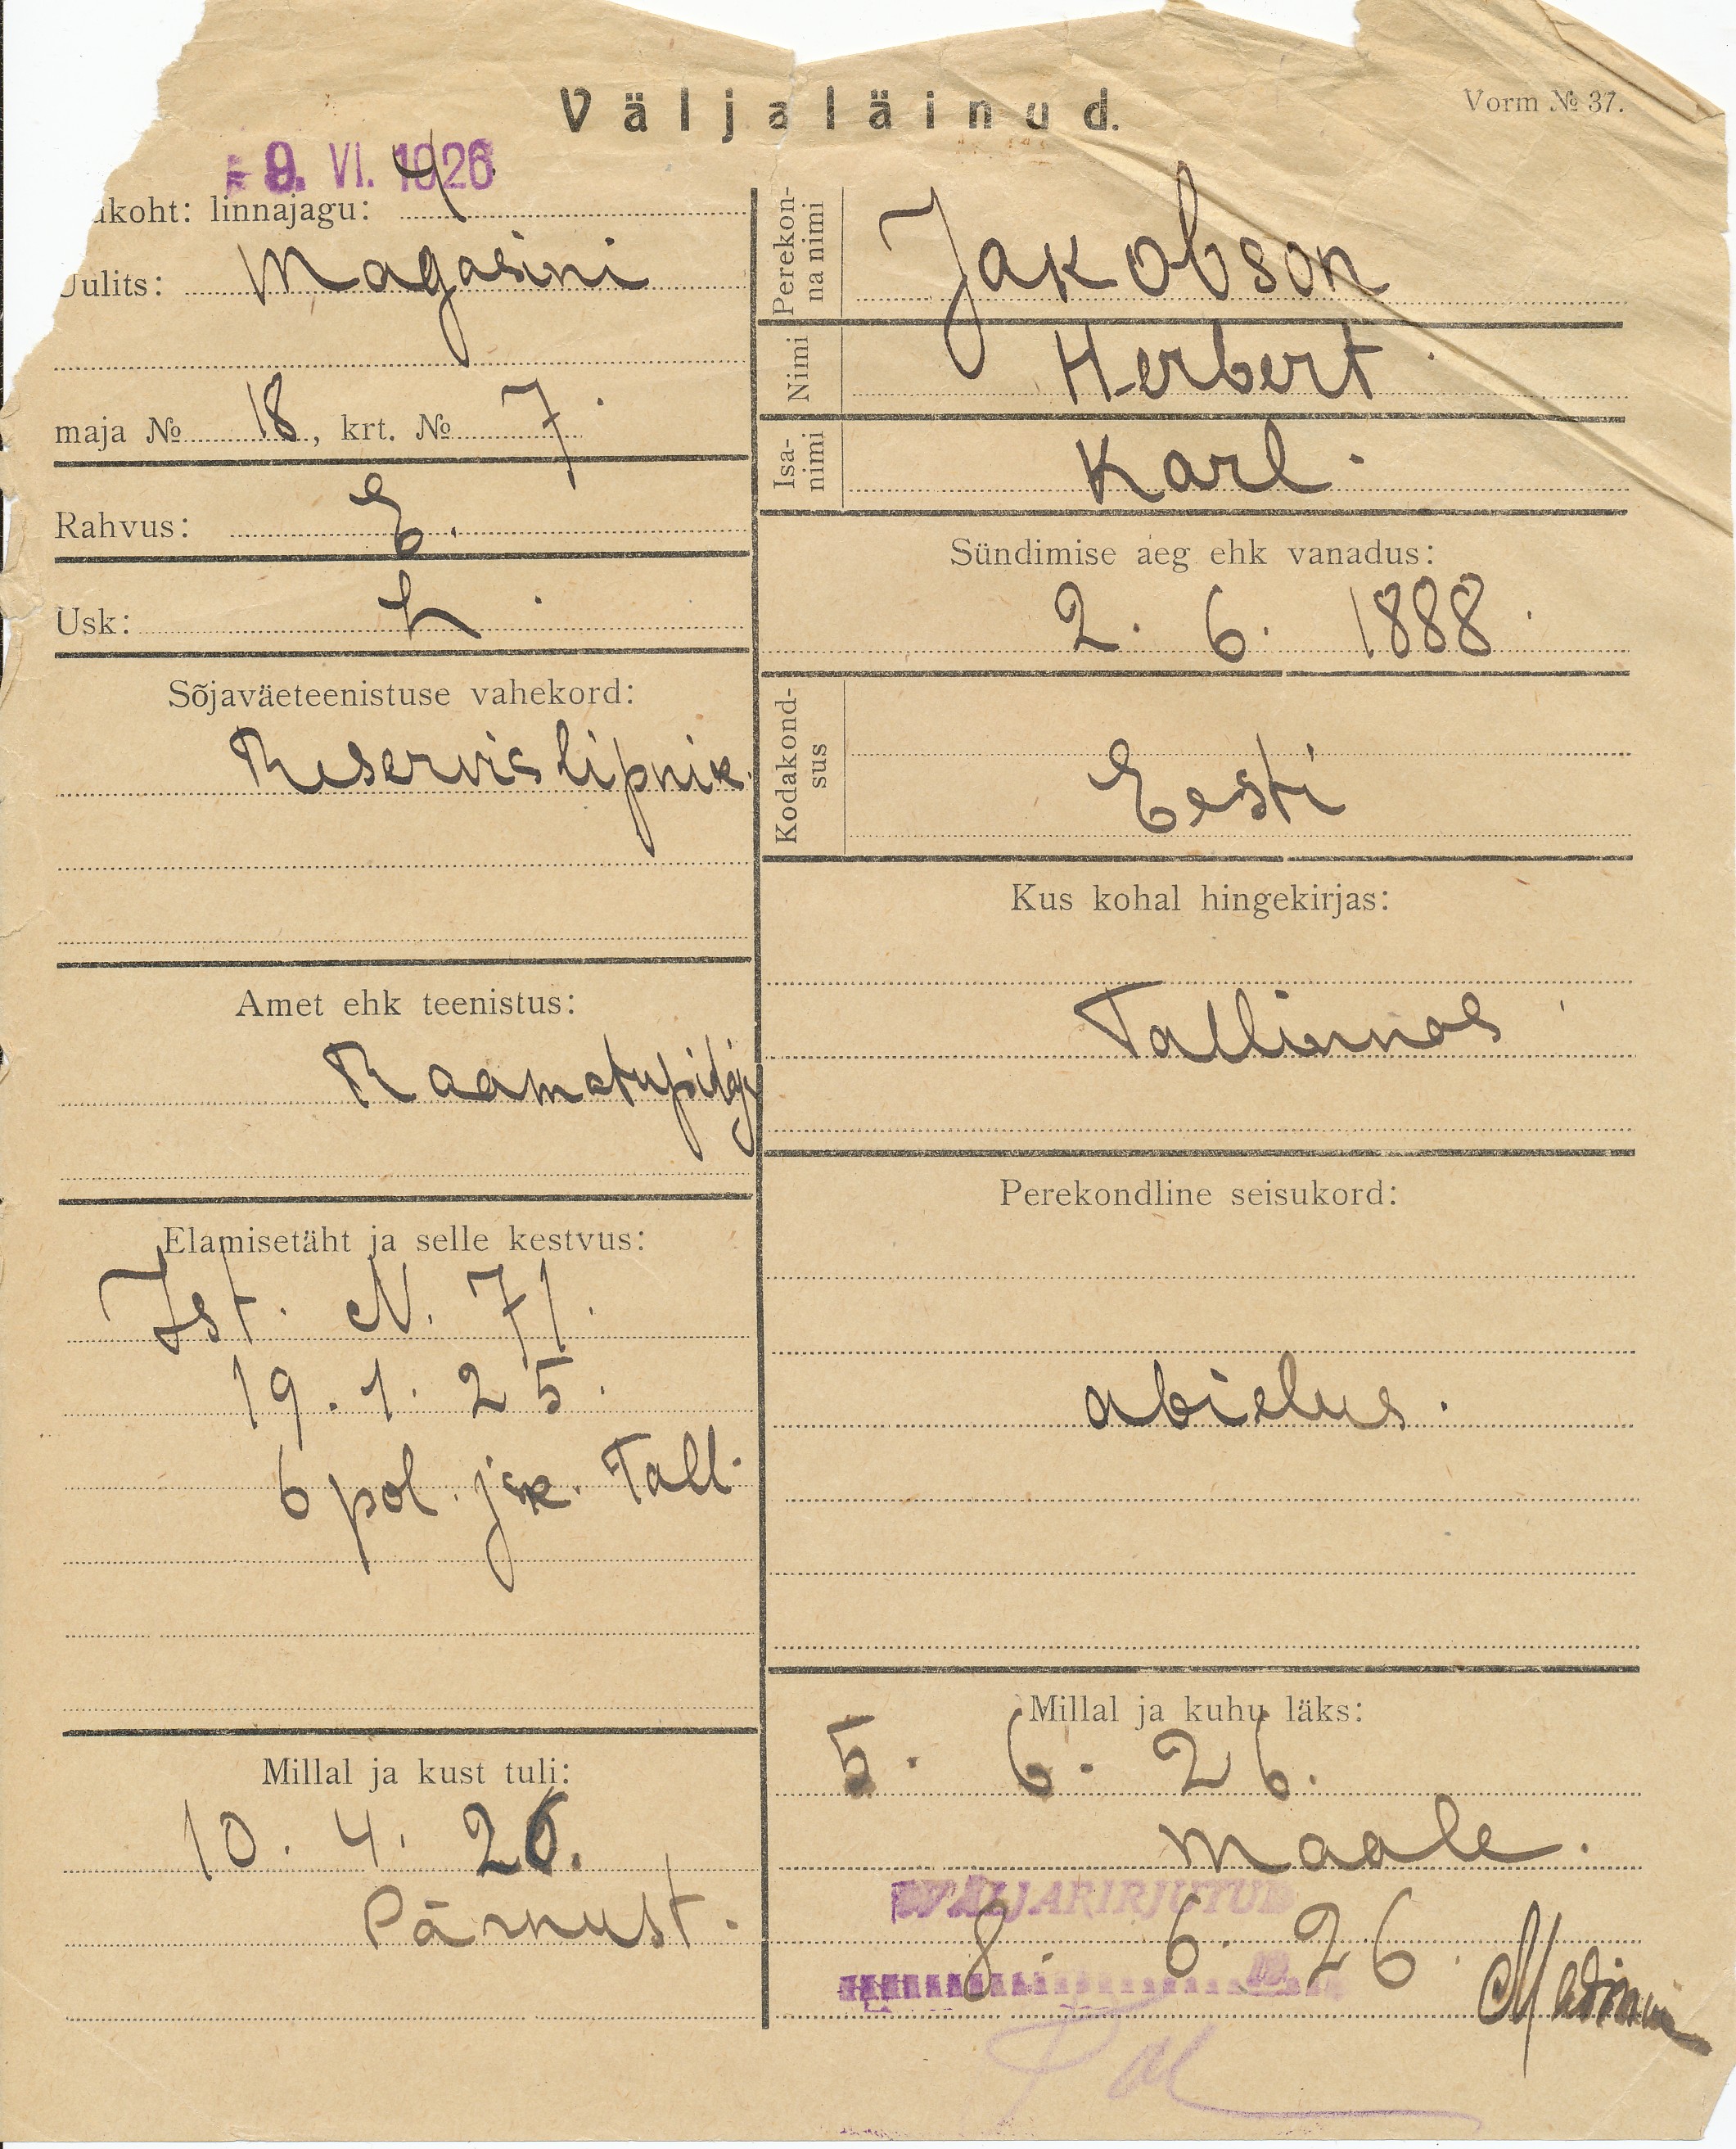 Väljaläinud.
Vorm № 37.
9. VI. 1926
ukoht: linnajagu: 4
Uulits: Magasini
maja № 18, krt. № 7.
Rahvus: E.
Usk: L.
Sõjaväeteenistuse vahekord:
Reservis lipnik.
Amet ehk teenistus:
Raamatupidaja
Elamisetäht ja selle kestvus:
Ist. N. 71.
19. 1. 25.
6 pol. jsk. Tall.
Millal ja kust tuli:
10. 4. 26.
Pärnust.
Perekonna nimi
Jakobson
Nimi
Herbert.
Isanimi
Karl.
Sündimise aeg ehk vanadus:
2. 6. 1888.
Kodakondsus
Eesti
Kus kohal hingekirjas:
Tallinnas
Perekondline seisukord:
abielus.
Millal ja kuhu läks:
5. 6. 26.
maale.
VÄLJAKIRJUTUD
8. 6. 26.